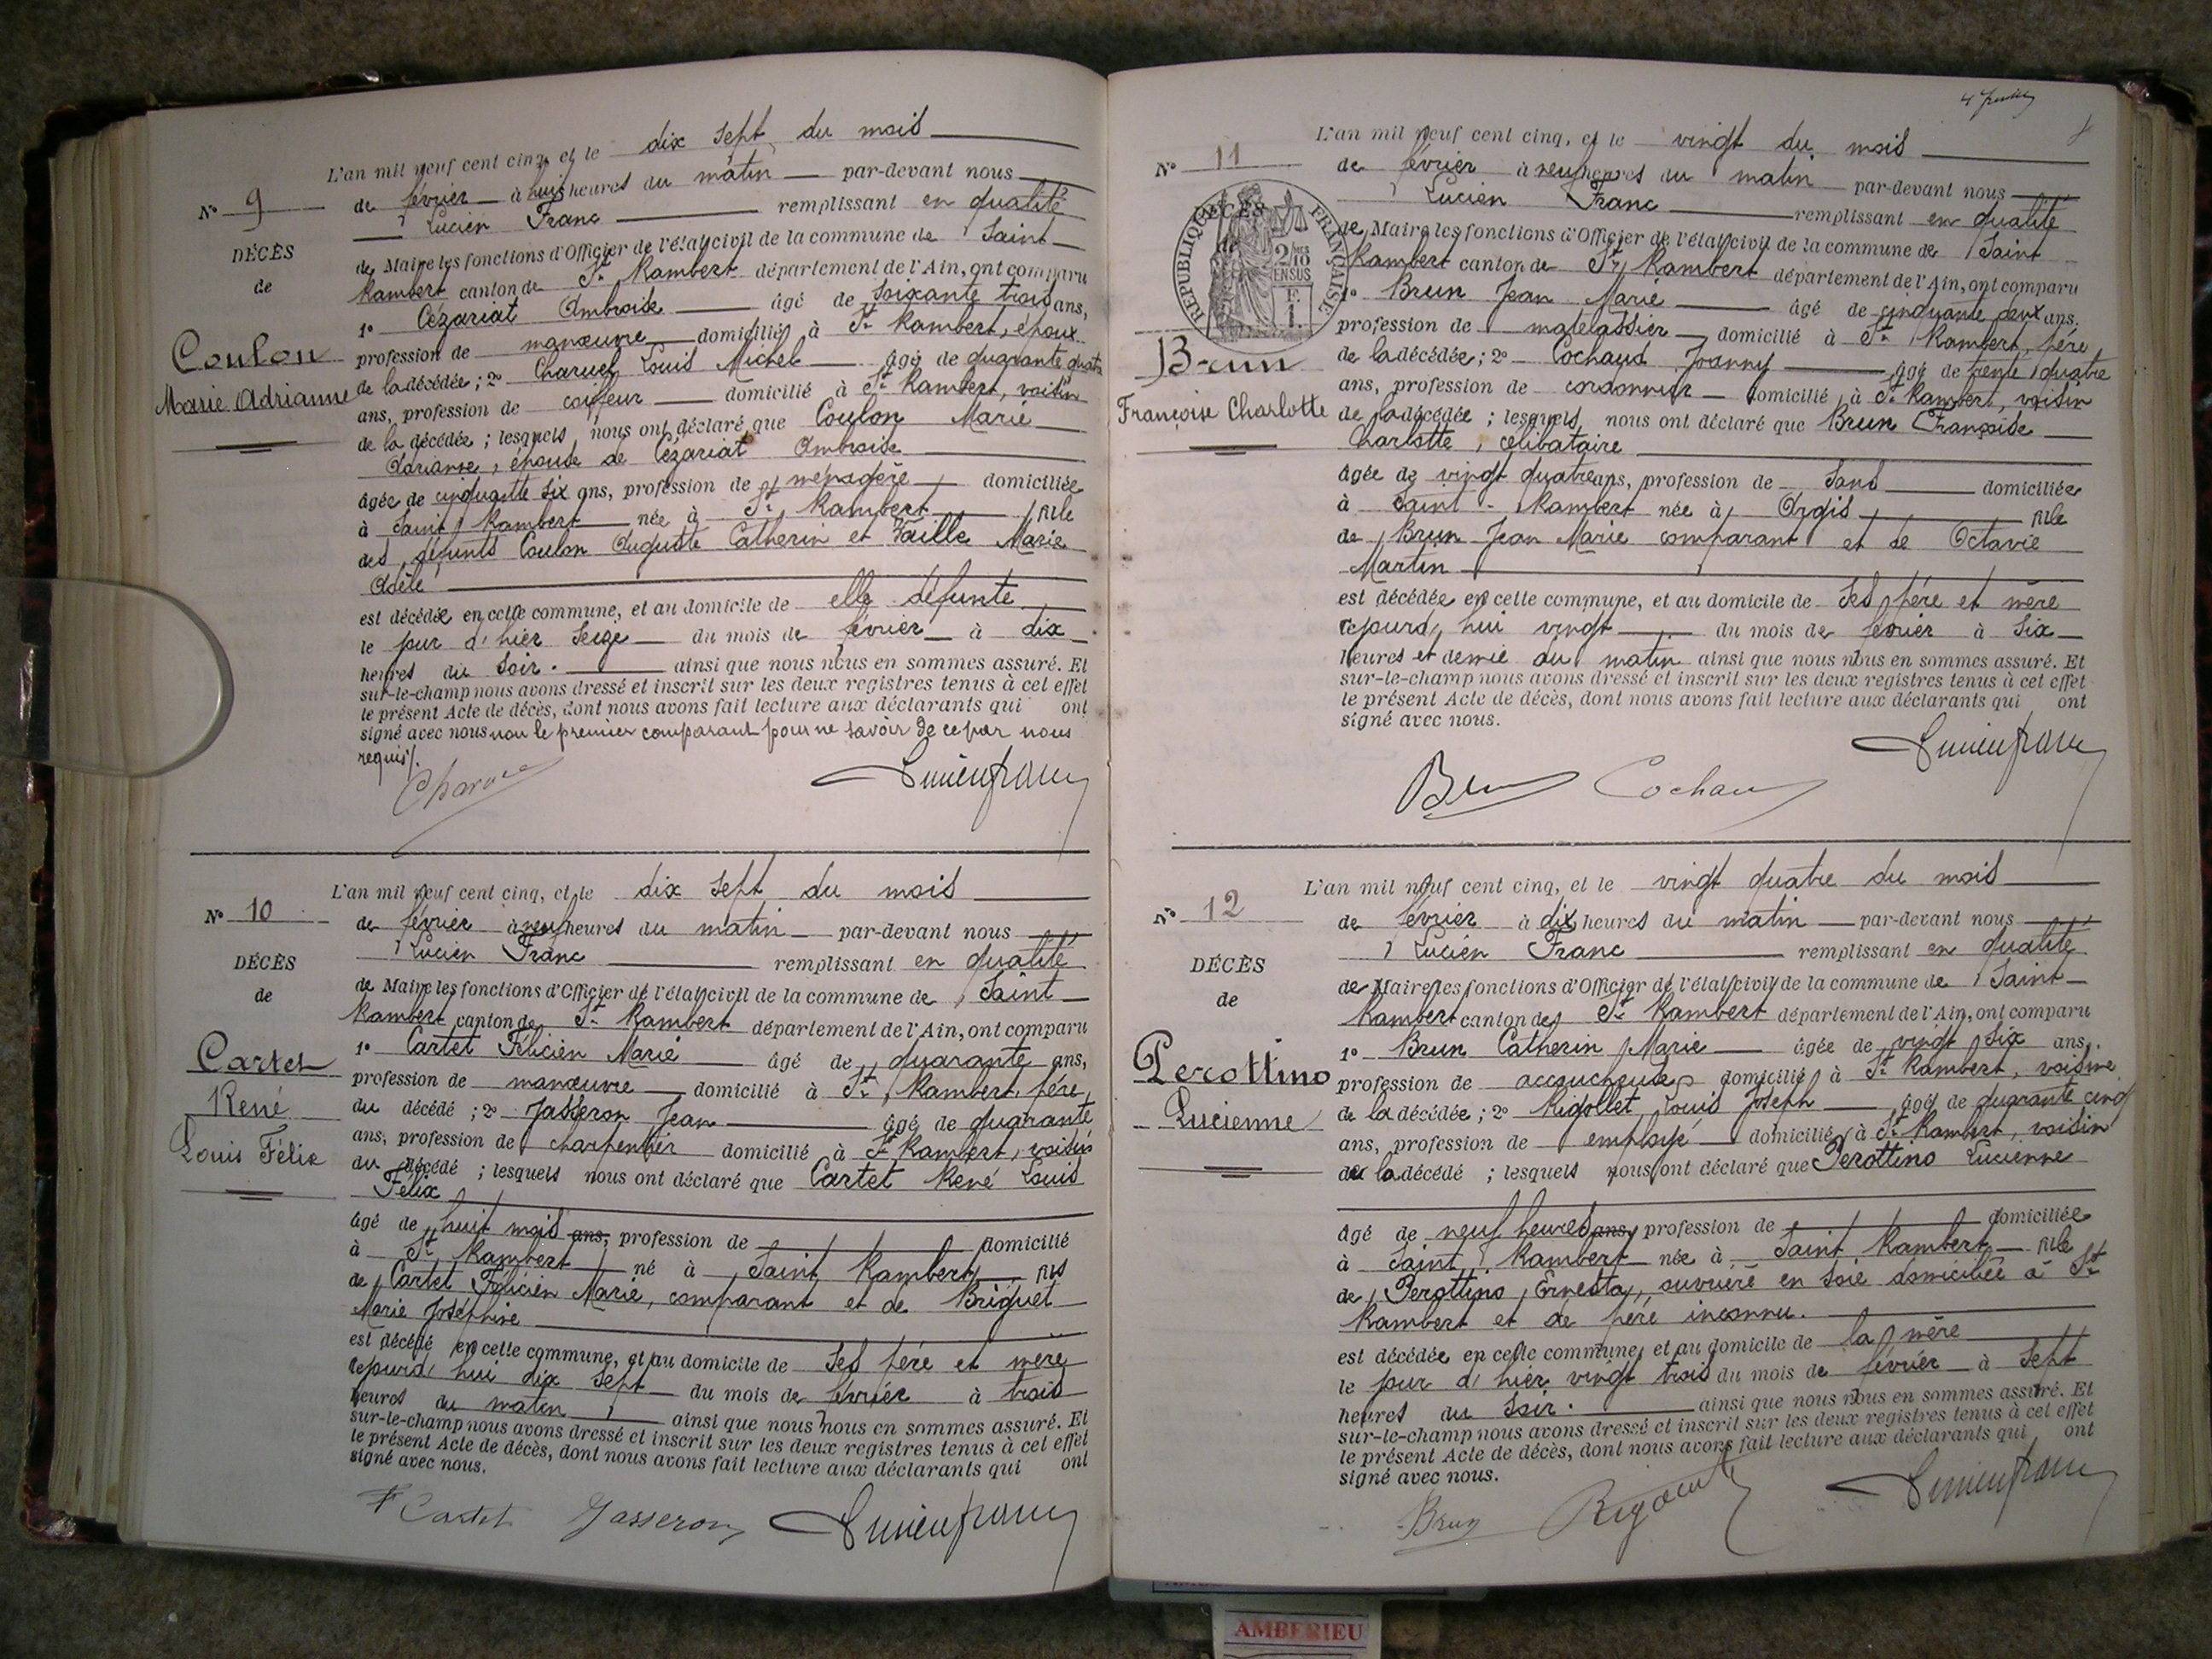 L'an mil neuf cent cinq, et le dix sept du mois
de février à huit heures du matin par-devant nous
Lucien Franc remplissant en qualité
de Maire les fonctions d'Officier de l'état civil de la commune de Saint
Rambert canton de St Rambert département de l'Ain, ont comparu
1° Cézariat Ambroise âgé de soixante trois ans,
profession de manœuvre domicilié à St Rambert, époux
de la décédée; 2° Charvet Louis Michel âgé de quarante quatre
ans, profession de coiffeur domicilié à St Rambert, voisin
de la décédée; lesquels nous ont déclaré que Coulon Marie
Adrianne, épouse de Cézariat Ambroise
âgée de cinquante six ans, profession de ménagère domiciliée
à Saint Rambert née à St Rambert fille
des défunts Coulon Auguste Catherin et Vaille Marie
Adèle
est décédée en cette commune, et au domicile de elle défunte
le jour d'hier seize du mois de février à dix
heures du soir. ainsi que nous nous en sommes assuré. Et
sur-le-champ nous avons dressé et inscrit sur les deux registres tenus à cet effet
le présent Acte de décès, dont nous avons fait lecture aux déclarants qui ont
signé avec nous non le premier comparant pour ne savoir de ce par nous
requis/.
N° 9
DÉCÈS
de
Coulon
Marie Adrianne
Charvet
Lucien franc
L'an mil neuf cent cinq, et le dix sept du mois
de février à neuf heures du matin par-devant nous
Lucien Franc remplissant en qualité
de Maire les fonctions d'Officier de l'état civil de la commune de Saint
Rambert canton de St Rambert département de l'Ain, ont comparu
1° Cartet Félicien Marie âgé de quarante ans,
profession de manœuvre domicilié à St Rambert, père
du décédé; 2° Jasseron Jean âgé de quarante
ans, profession de charpentier domicilié à St Rambert, voisin
du décédé; lesquels nous ont déclaré que Cartet René Louis
Félix
âgé de huit mois ans, profession de domicilié
à St Rambert né à Saint Rambert fils
de Cartet Félicien Marie, comparant et de Briguet
Marie Joséphine
est décédé en cette commune, et au domicile de ses père et mère
cejourd'hui dix sept du mois de février à trois
heures du matin ainsi que nous nous en sommes assuré. Et
sur-le-champ nous avons dressé et inscrit sur les deux registres tenus à cet effet
le présent Acte de décès, dont nous avons fait lecture aux déclarants qui ont
signé avec nous.
N° 10
DÉCÈS
de
Cartet
René
Louis Félix
F Cartet Jasseron Lucien franc
L'an mil neuf cent cinq, et le vingt du mois
de février à neuf heures du matin par-devant nous
Lucien Franc remplissant en qualité
de Maire les fonctions d'Officier de l'état civil de la commune de Saint
Rambert canton de St Rambert département de l'Ain, ont comparu
1° Brun Jean Marie âgé de cinquante deux ans,
profession de matelassier domicilié à St Rambert, père
de la décédée; 2° Cochaud Joanny âgé de trente quatre
ans, profession de cordonnier domicilié à St Rambert, voisin
de la décédée; lesquels nous ont déclaré que Brun Françoise
Charlotte, célibataire
âgée de vingt quatre ans, profession de sans domiciliée
à Saint-Rambert née à Argis fille
de Brun Jean Marie comparant et de Octavie
Martin
est décédée en cette commune, et au domicile de ses père et mère
cejourd'hui vingt du mois de février à six
heures et demie du matin ainsi que nous nous en sommes assuré. Et
sur-le-champ nous avons dressé et inscrit sur les deux registres tenus à cet effet
le présent Acte de décès, dont nous avons fait lecture aux déclarants qui ont
signé avec nous.
N° 11
DÉCÈS
de
RÉPUBLIQUE FRANÇAISE
2/10 EN SUS
F.
1.
Brun
Françoise Charlotte
Lucien franc
Brun Cochaud
L'an mil neuf cent cinq, et le vingt quatre du mois
de février à dix heures du matin par-devant nous
Lucien Franc remplissant en qualité
de Maire les fonctions d'Officier de l'état civil de la commune de Saint
Rambert canton de St Rambert département de l'Ain, ont comparu
1° Brun Catherin Marie âgée de vingt six ans,
profession de accoucheuse domicilié à St Rambert, voisine
de la décédée; 2° Rigollet Louis Joseph âgé de quarante cinq
ans, profession de employé domicilié à St Rambert, voisin
de la décédé; lesquels nous ont déclaré que Perottino Lucienne
âgé de neuf heures ans, profession de domiciliée
à Saint Rambert née à Saint Rambert fille
de Perottino Ernesta, ouvrière en soie domiciliée à St
Rambert et de père inconnu.
est décédée en cette commune, et au domicile de la mère
le jour d'hier vingt trois du mois de février à sept
heures du soir. ainsi que nous nous en sommes assuré. Et
sur-le-champ nous avons dressé et inscrit sur les deux registres tenus à cet effet
le présent Acte de décès, dont nous avons fait lecture aux déclarants qui ont
signé avec nous.
N° 12
DÉCÈS
de
Perottino
Lucienne
Brun Rigollet Lucien franc
AMBERIEU